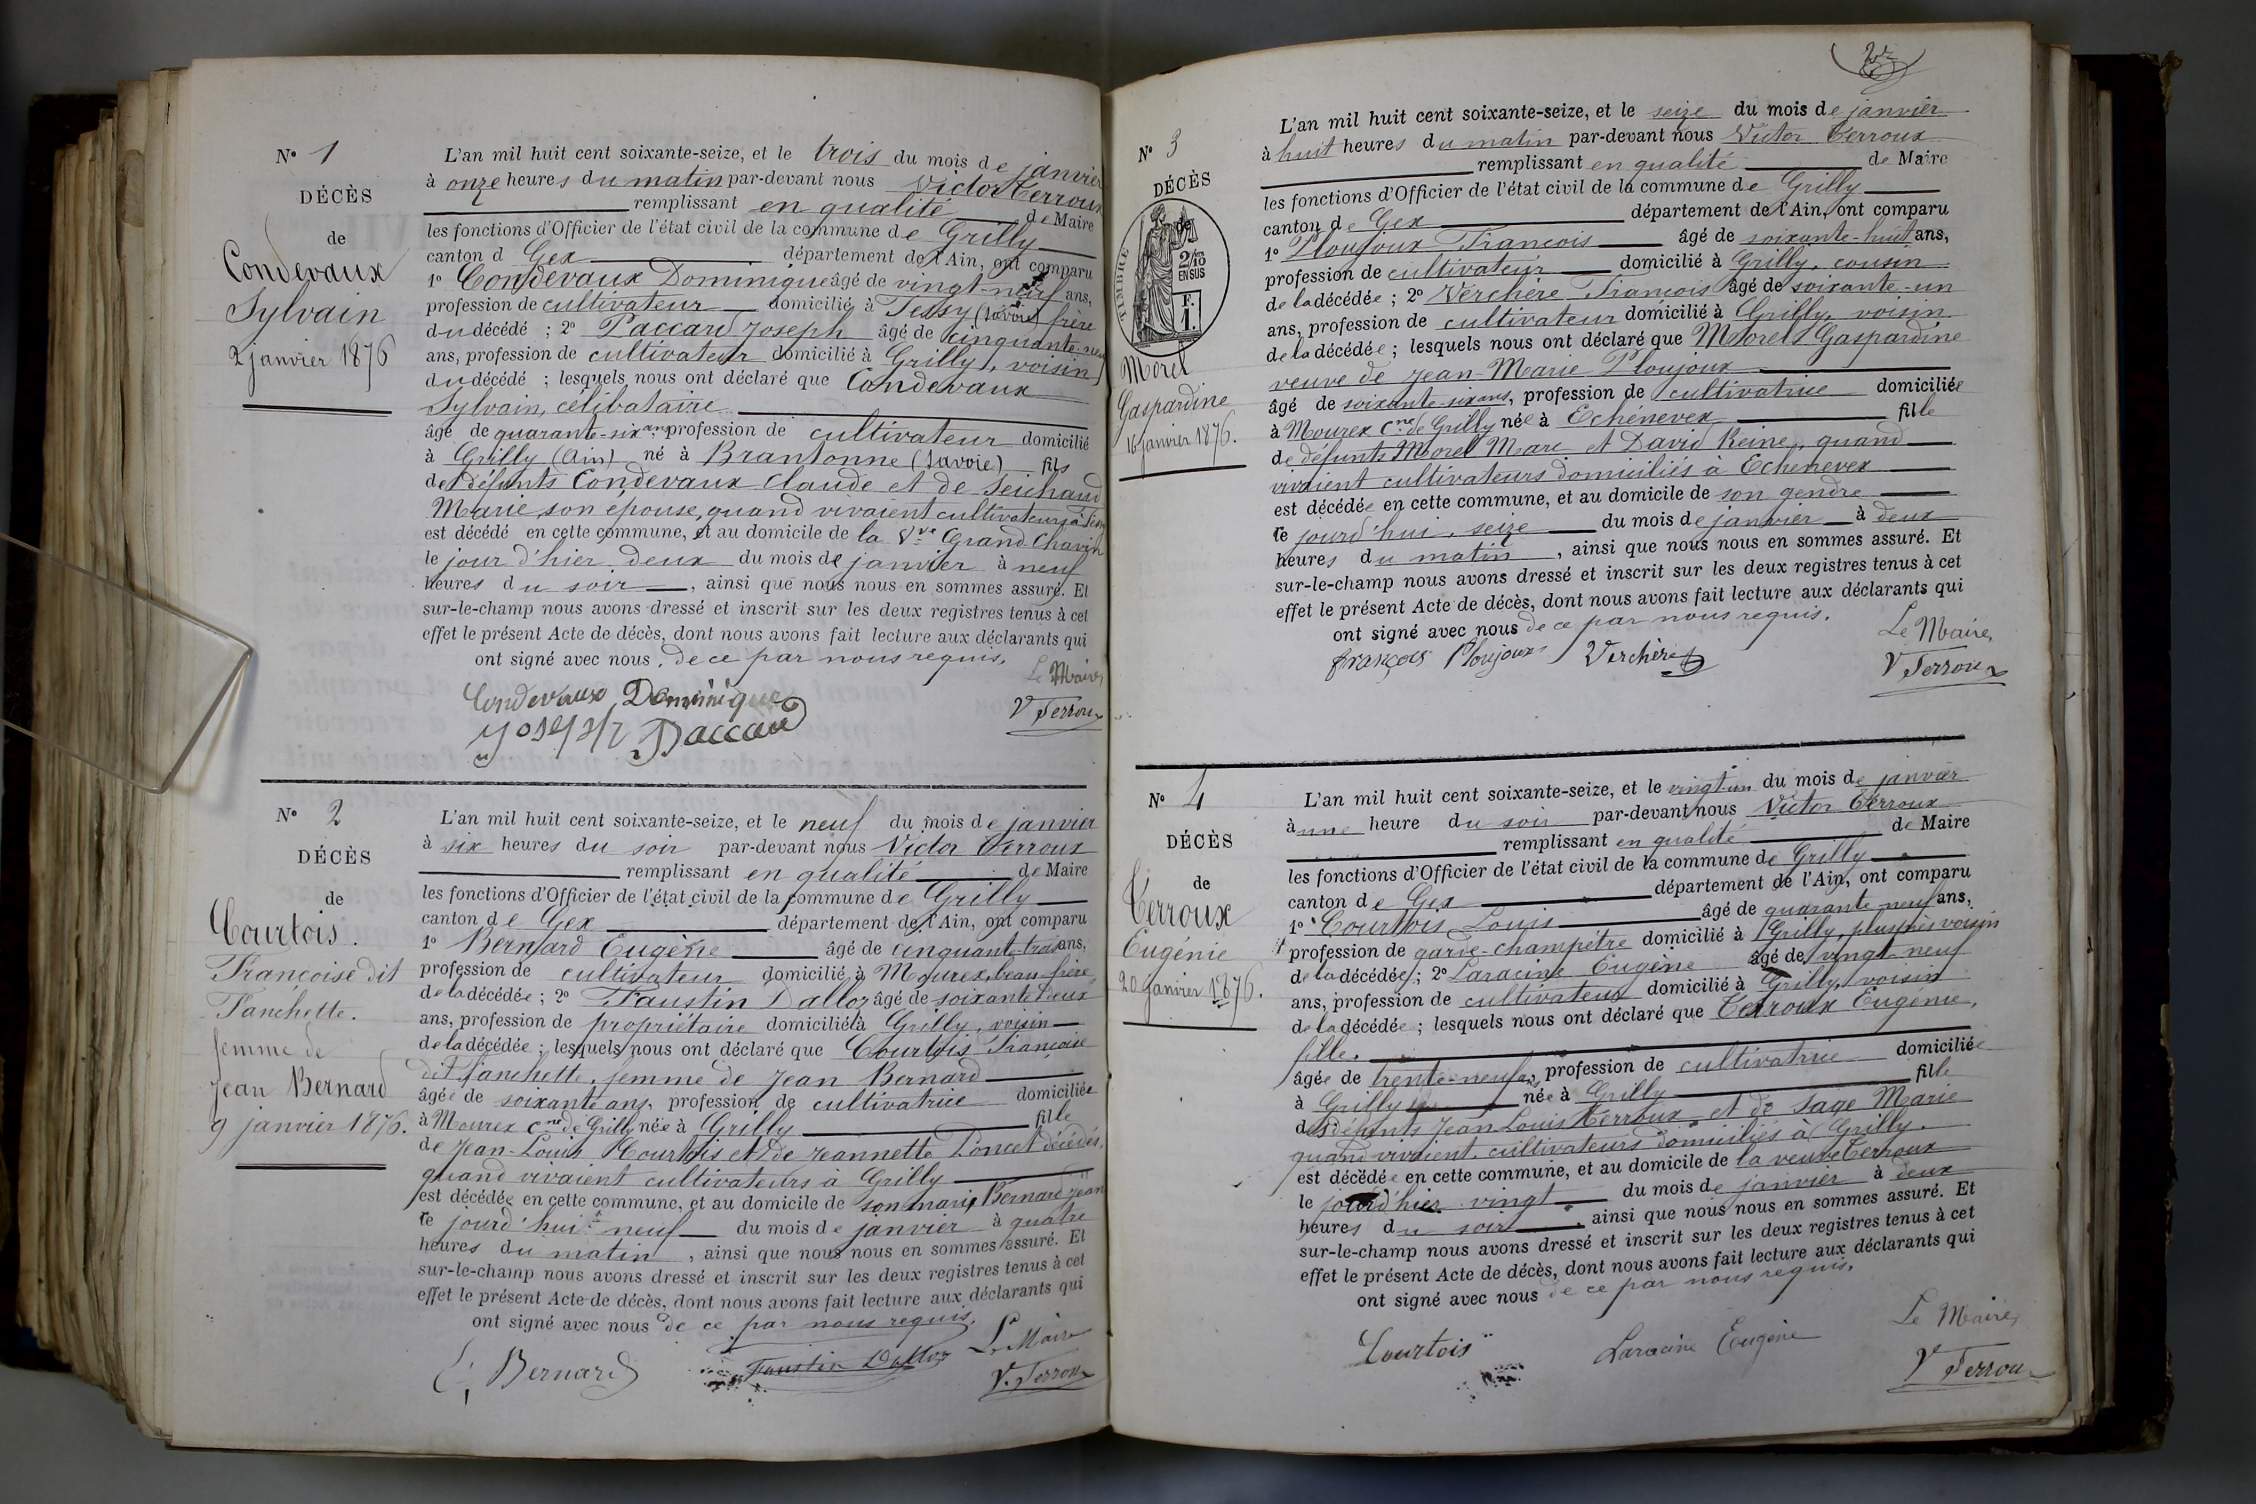 N° 1
DÉCÈS
de
Condevaux
Sylvain
2 janvier 1876
L'an mil huit cent soixante-seize, et le trois du mois de janvier
à onze heures du matin par-devant nous Victor Terroux
remplissant en qualité de Maire
les fonctions d'Officier de l'état civil de la commune de Grilly
canton d Gex département de l'Ain, ont comparu
1° Condevaux Dominique âgé de vingt-neuf ans,
profession de cultivateur domicilié à Tessy (Savoie) frère
du décédé ; 2° Paccard Joseph âgé de cinquante-neuf
ans, profession de cultivateur domicilié à Grilly, voisin
du décédé ; lesquels nous ont déclaré que Condevaux
Sylvain, célibataire
âgé de quarante-six ans, profession de cultivateur domicilié
à Grilly (Ain) né à Brantonne (Savoie) fils
des défunts Condevaux Claude et de Seichaud
Marie son épouse, quand vivaient cultivateurs à
est décédé en cette commune, et au domicile de la Vve Grand-Chavin
le jour d'hier deux du mois de janvier à neuf
heures du soir, ainsi que nous nous en sommes assuré. Et
sur-le-champ nous avons dressé et inscrit sur les deux registres tenus à cet
effet le présent Acte de décès, dont nous avons fait lecture aux déclarants qui
ont signé avec nous, de ce par nous requis.
Le Maire,
Condevaux Dominique
V Terroux
Joseph Paccard
N° 2
DÉCÈS
de
Courtois.
Françoise dit
Fanchette.
femme de
Jean Bernard
9 janvier 1876.
L'an mil huit cent soixante-seize, et le neuf du mois de janvier
à six heures du soir par-devant nous Victor Terroux
remplissant en qualité de Maire
les fonctions d'Officier de l'état civil de la commune de Grilly
canton de Gex département de l'Ain, ont comparu
1° Bernard Eugène âgé de cinquante-trois ans,
profession de cultivateur domicilié à Mourex, beau-frère
de la décédée ; 2° Faustin Dalloz âgé de soixante-deux
ans, profession de propriétaire domicilié à Grilly, voisin
de la décédée ; lesquels nous ont déclaré que Courtois Françoise
dit Fanchette, femme de Jean Bernard
âgée de soixante ans, profession de cultivatrice domiciliée
à Mourex Cne de Grilly née à Grilly fille
de Jean-Louis Courtois et de Jeannette Poncet décédés,
quand vivaient cultivateurs à Grilly
est décédée en cette commune, et au domicile de son mari, Bernard Jean
le jourd'hui neuf du mois de janvier à quatre
heures du matin, ainsi que nous nous en sommes assuré. Et
sur-le-champ nous avons dressé et inscrit sur les deux registres tenus à cet
effet le présent Acte de décès, dont nous avons fait lecture aux déclarants qui
ont signé avec nous de ce par nous requis.
Le Maire
E. Bernard Faustin Dalloz
V. Terroux
N° 3
DÉCÈS
de
TIMBRE
2/10
EN SUS
F.
1.
Morel
Gaspardine
16 janvier 1876.
L'an mil huit cent soixante-seize, et le seize du mois de janvier
à huit heures du matin par-devant nous Victor Terroux
remplissant en qualité de Maire
les fonctions d'Officier de l'état civil de la commune de Grilly
canton de Gex département de l'Ain, ont comparu
1° Ploujoux François âgé de soixante-huit ans,
profession de cultivateur domicilié à Grilly, cousin
de la décédée ; 2° Verchère François âgé de soixante-un
ans, profession de cultivateur domicilié à Grilly, voisin
de la décédée ; lesquels nous ont déclaré que Morel Gaspardine
veuve de Jean-Marie Ploujoux
âgé de soixante-six ans, profession de cultivatrice domiciliée
à Mourex Cne de Grilly née à Echenevex fille
de défunts Morel Marc et David Reine, quand
vivaient cultivateurs domiciliés à Echenevex
est décédée en cette commune, et au domicile de son gendre
le jourd'hui, seize du mois de janvier à deux
heures du matin, ainsi que nous nous en sommes assuré. Et
sur-le-champ nous avons dressé et inscrit sur les deux registres tenus à cet
effet le présent Acte de décès, dont nous avons fait lecture aux déclarants qui
ont signé avec nous de ce par nous requis.
Le Maire,
françois Ploujoux Verchère
V Terroux
N° 4
DÉCÈS
de
Terroux
Eugénie
20 janvier 1876.
L'an mil huit cent soixante-seize, et le vingt-un du mois de janvier
à une heure du soir par-devant nous Victor Terroux
remplissant en qualité de Maire
les fonctions d'Officier de l'état civil de la commune de Grilly
canton de Gex département de l'Ain, ont comparu
1° Courtois Louis âgé de quarante-neuf ans,
profession de garde-champêtre domicilié à Grilly, plus près voisin
de la décédée ; 2° Laracine Eugène âgé de vingt-neuf
ans, profession de cultivateur domicilié à Grilly, voisin
de la décédée ; lesquels nous ont déclaré que Terroux Eugénie,
fille.
âgée de trente-neuf ans, profession de cultivatrice domiciliée
à Grilly née à Grilly fille
des défunts Jean Louis Terroux et de Sage Marie
quand vivaient cultivateurs domiciliés à Grilly.
est décédée en cette commune, et au domicile de la veuve Terroux
le jour d'hier vingt du mois de janvier à deux
heures du soir, ainsi que nous nous en sommes assuré. Et
sur-le-champ nous avons dressé et inscrit sur les deux registres tenus à cet
effet le présent Acte de décès, dont nous avons fait lecture aux déclarants qui
ont signé avec nous de ce par nous requis.
Le Maire,
Courtois Laracine Eugène
V Terroux